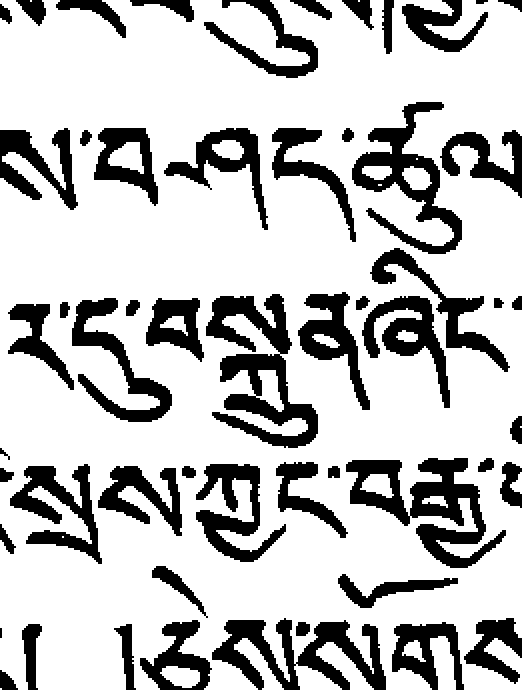 ས་བཤད་ཚུལ
ར་དུ་བསྐྲུན་ཞིང་
སྲས་ཀྱང་བརྒྱ་
། །ཅེས་སོགས